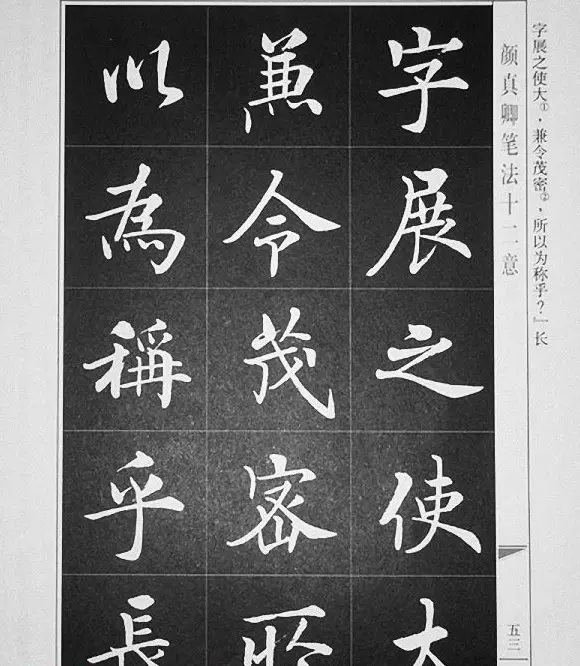 字展之使大①，兼令茂密②，所以为称乎？』长
颜真卿笔法十二意
五三
字展之使大
兼令茂密所
以為稱乎長